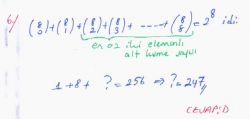 6/ (8 0)+(8 1)+(8 2)+(8 3)+ ----+(8 8)=2^8 idi
en az iki elemanlı
alt küme sayısı
1+8+ ?=256 ⇒ ?=247//
CEVAP:D